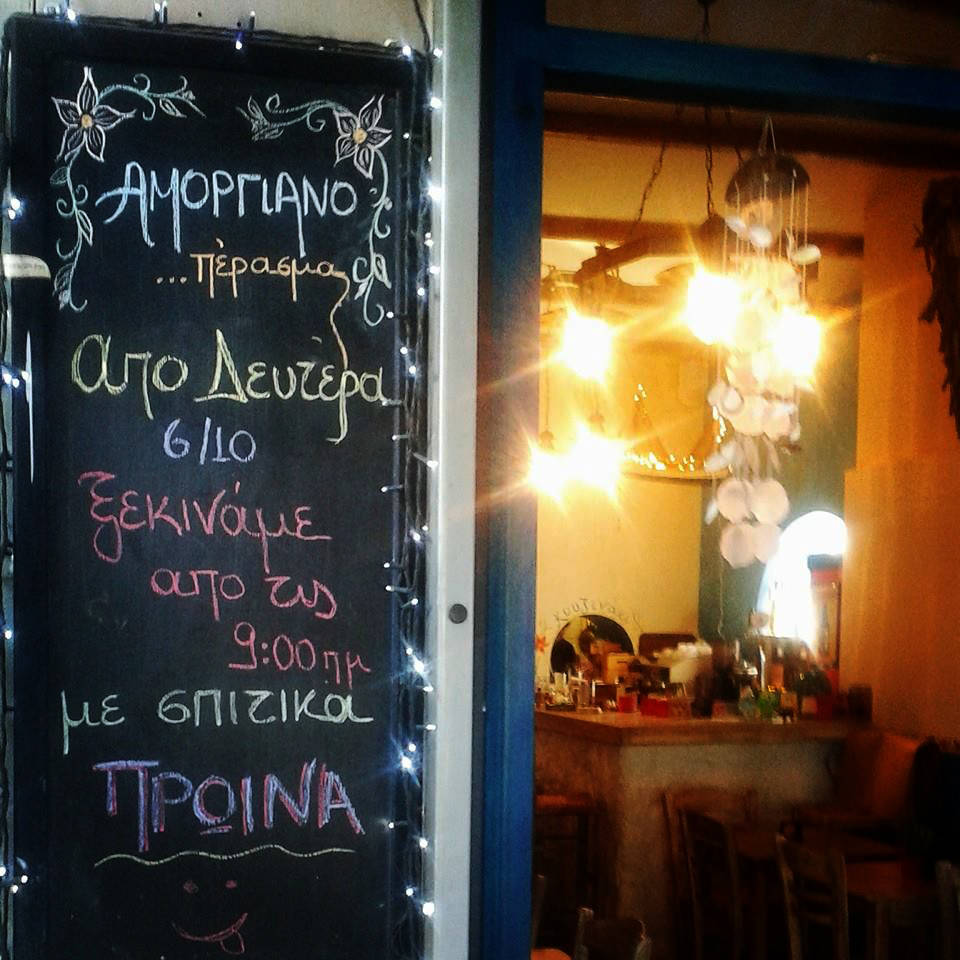 ΑΜΟΡΓΙΑΝΟ
...πέρασμα
απο Δευτέρα
6/10
ξεκινάμε
απο τις
9:00πμ
με σπιτικά
ΠΡΩΙΝΑ